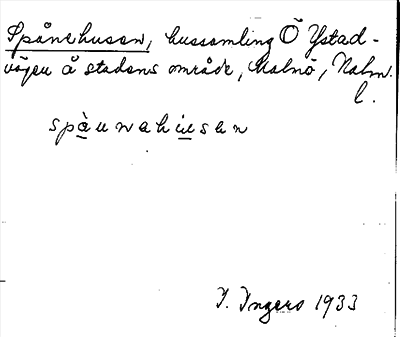 Spånehusen, hussamling Ö Ystad-
vägen å stadens område, Malmö, Malm.
l.
spàunahu̠san
I. Ingers 1933